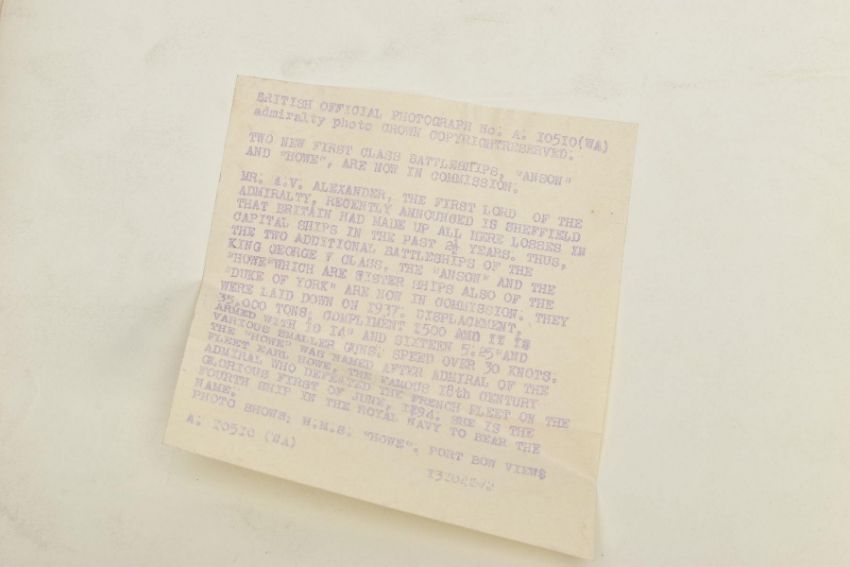 BRITISH OFFICIAL PHOTOGRAPH No: A. I05I0(WA)
admiralty photo CROWN COPYRIGHTRESERVED.
TWO NEW FIRST CLASS BATTLESHIPS, "ANSON"
AND "HOWE", ARE NOW IN COMMISSION.
MR. A.V. ALEXANDER, THE FIRST LORD OF THE
ADMIRALTY, RECENTLY ANNOUNCED IS SHEFFIELD
THAT BRITAIN HAD MADE UP ALL HERE LOSSES IN
CAPITAL SHIPS IN THE PAST 2½ YEARS. THUS,
THE TWO ADDITIONAL BATTLESHIPS OF THE
KING GEORGE V CLASS, THE "ANSON" AND THE
"HOWE"WHICH ARE SISTER SHIPS ALSO OF THE
"DUKE OF YORK" ARE NOW IN COMMISSION. THEY
WERE LAID DOWN ON I937. DISPLACEMENT,
35,000 TONS, COMPLIMENT I500 AND IT IS
ARMED WITH I0 I4" AND SIXTEEN 5.25"AND
VARIOUS SMALLER GUNS. SPEED OVER 30 KNOTS.
THE "HOWE" WAS NAMED AFTER ADMIRAL OF THE
FLEET EARL HOWE, THE FAMOUS I8th CENTURY
ADMIRAL WHO DEFEATED THE FRENCH FLEET ON THE
GLORIOUS FIRST OF JUNE, I794. SHE IS THE
FOURTH SHIP IN THE ROYAL NAVY TO BEAR THE
NAME.
PHOTO SHOWS; H.M.S. "HOWE". PORT BOW VIEWS
A. I05I0 (WA)